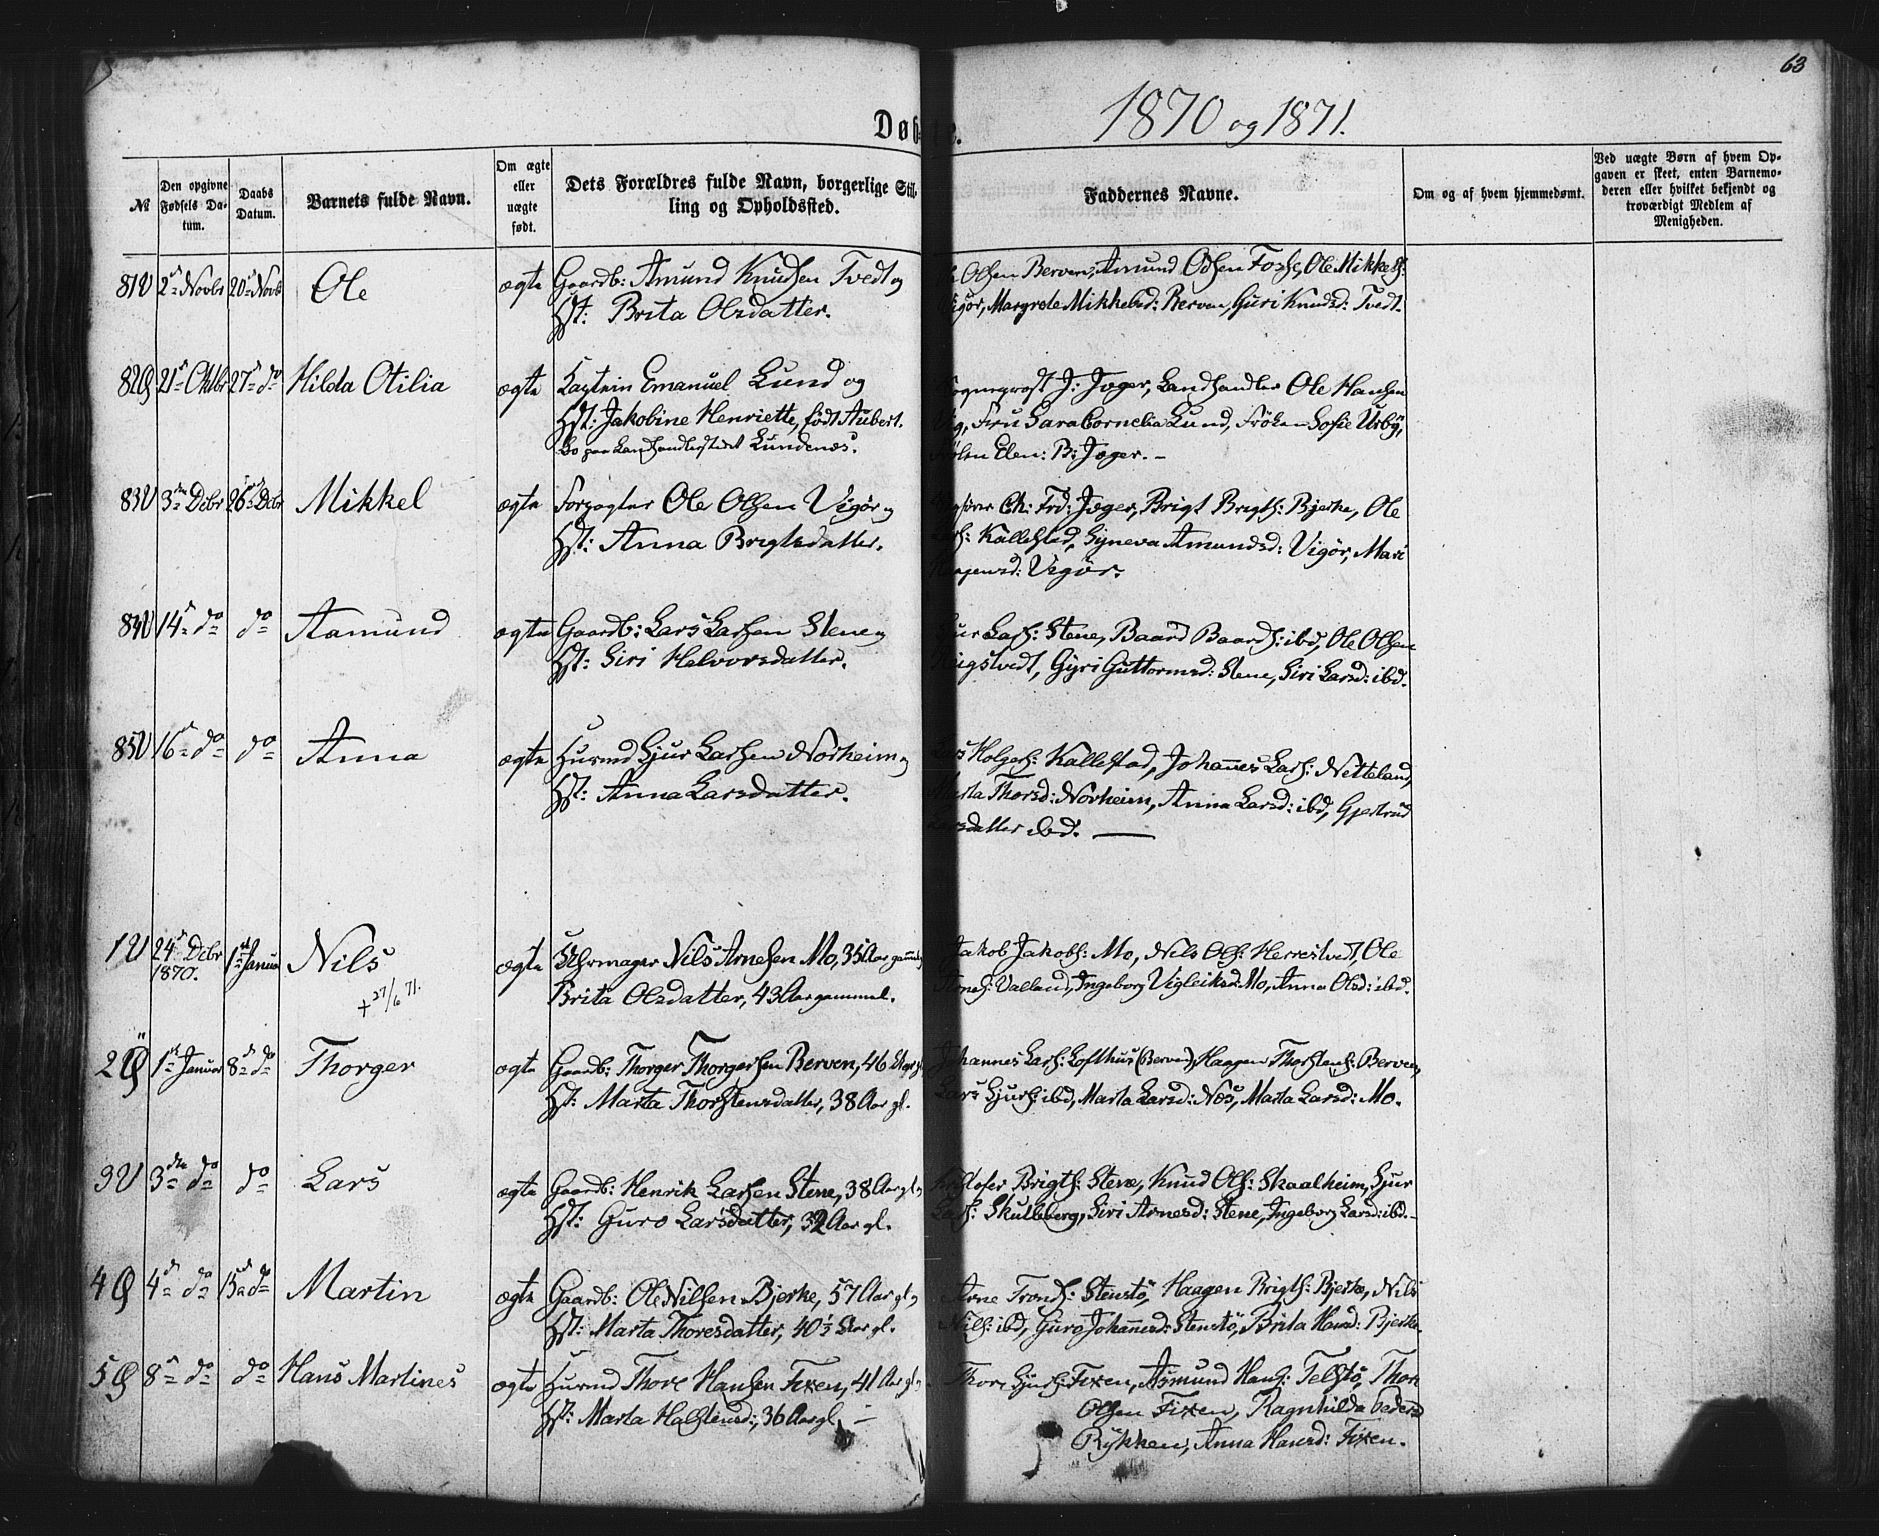 63
1870 og 1871.
Døb
№
Den opgivne Fødsels Da-
tum.
Daabs
Datum.
Barnets fulde Navn.
Om ægte
eller
uægte
født.
Dets Forældres fulde Navn, borgerlige Stil-
ling og Opholdssted.
Faddernes Navne.
Om og af hvem hjemmedømt.
Ved uægte Børn af hvem Op-
gaven er skeet, enten Barnemo-
deren eller hvilket bekjendt og
troværdigt Medlem af
Menigheden.
81 2den Novbr 20de Novb Ole ægte Gaardb: Amund Knudsen Tvedt og
Hst: Brita Olsdatter.
Olsen Berven, Amund Odsen Fosse, Ole Mikkels:
Vigør, Margrete Mikkelsd: Berven, Guri Knudsd: Tvedt.
82 21de Oktbr 27de do Hilda Otilia ægte Kaptein Emanuel Lund og
Hst: Jakobine Henriette, født Aubert.
Bo paa Landhandlerstedet Lundenæs.
Sogneprost J: Jæger, Landhandler Ole Hansen
Vig, Fru Sara Cornelia Lund, Frøken Sofie Urby,
Frøken Elen: B: Jæger. –
83 3die Debr 26de Debr Mikkel ægte Forpagter Ole Olsen Vigør og
Hst: Anna Brigtsdatter.
Ch: Frd: Jæger, Brigt Brigts: Bjerke, Ole
Lars: Kallestad, Syneva Amundsd: Vigør, Mari
Vigør.
84 14de do do Aamund ægte Gaardb: Lars Larsen Stene og
Hst: Siri Halvorsdatter.
Sjur Lars: Stene, Baard Baards: ibd, Ole Olsen
Ringstvedt, Gyri Guttormsd: Stene, Siri Larsd: ibd.
85 16de do do Anna ægte Husmd Sjur Larsen Norheim og
Hst: Anna Larsdatter.
Lars Holgers: Kallestad, Johannes Lars: Netteland,
Marta Thorsd: Norheim, Anna Larsd: ibd, Gjertrud
Larsdatter ibd. —
1 24de Debr
1870. 1ste Januar Nils ægte Uhrmager Nils Arnesen Mo, 35 Aar gammel
+ 27/6 71. Brita Olsdatter, 43 Aar gammel.
Jakob Jakobs: Mo, Nils Ols: Herrestvedt, Ole
Arnes: Valland, Ingeborg Vigleiksd: Mo, Anna Olsd: ibd.
2 1ste Januar 8de do Thorger ægte Gaardb: Thorger Thorgersen Berven, 46 Aar gl
Hst: Marta Thorstensdatter, 38 Aar gl.
Johannes Lars: Lofthus (Berven), Haagen Thorstens: Berven,
Lars Sjurs: ibd, Marta Larsd: Næs, Marta Larsd: Mo.
3 3die do do Lars ægte Gaardb: Henrik Larsen Stene, 38 Aar gl og
Hst: Guro Larsdatter, 32 Aar gl.
Kristofer Brigts: Stene, Knud Ols: Skaalheim, Sjur
Lars: Skutleberg, Siri Arnesd: Stene, Ingeborg Larsd: ibd.
4 4de do 15de do Martin ægte Gaardb: Ole Nilsen Bjerke, 57 Aar gl og
Hst: Marta Thoresdatter, 40½ Aar gl.
Arne Tronds: Stenstø, Haagen Brigts: Bjerke, Nils
Nils: ibd, Guro Johannesd: Stenstø, Brita Hansd: Bjerke.
5 8de do do Hans Martines ægte Husmd Thore Hansen Fixen, 41 Aar gl og
Hst: Marta Halstensd:, 36 Aar gl. –
Thore Sjurs: Fixen, Asmund Hans: Telstø, Thore
Olsen Fixen, Ragnhilda Pedersd
Rykken, Anna Hansd: Fixen.